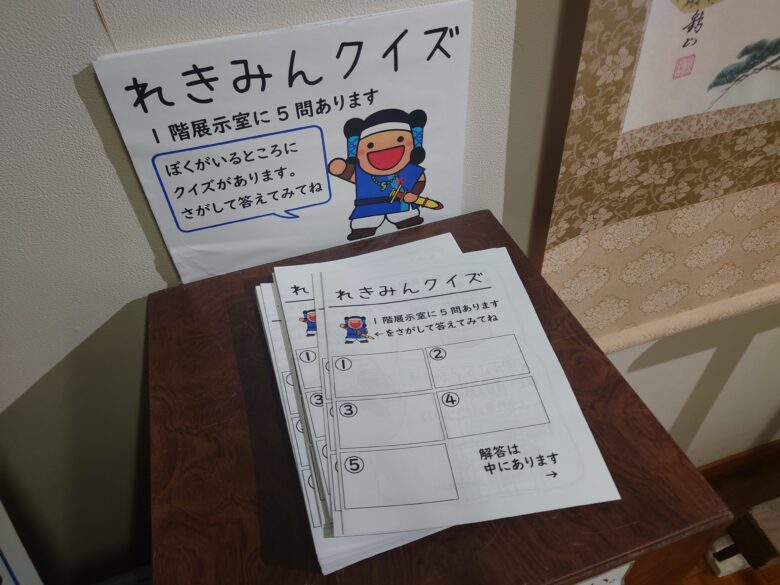 れきみんクイズ
1階展示室に5問あります
ぼくがいるところに
クイズがあります。
さがして答えてみてね
れきみんクイズ
1階展示室に5問あります
←をさがして答えてみてね
①
②
③
④
⑤
解答は
中にあります
→
れ
①
③